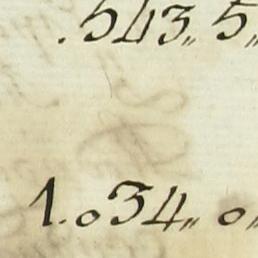 .543,, 5,,
1.034,, 0,,